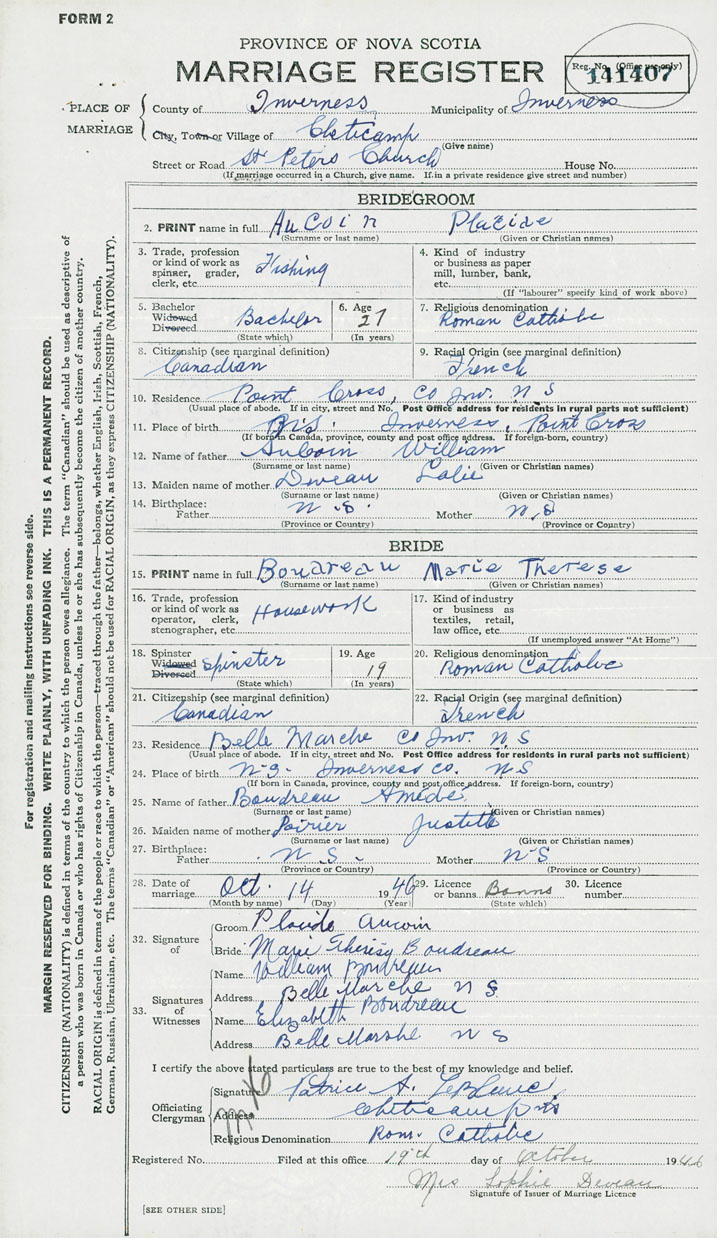 FORM 2
PROVINCE OF NOVA SCOTIA
MARRIAGE REGISTER
Reg. No. (Office use only)
141407
PLACE OF MARRIAGE
County of Inverness Municipality of Inverness
City, Town or Village of Cheticamp
(Give name)
Street or Road St Peters Church House No.
(If marriage occurred in a Church, give name. If in a private residence give street and number)
BRIDEGROOM
2. PRINT name in full Aucoin Placide
(Surname or last name) (Given or Christian names)
3. Trade, profession or kind of work as spinner, grader, clerk, etc. Fishing
4. Kind of industry or business as paper mill, lumber, bank, etc.
(If "labourer" specify kind of work above)
5. Bachelor Widowed Divorced Bachelor
(State which)
6. Age 27
(In years)
7. Religious denomination
Roman Catholic
8. Citizenship (see marginal definition)
Canadian
9. Racial Origin (see marginal definition)
French
10. Residence Point Cross, Co Inv. N S
(Usual place of abode. If in city, street and No. Post Office address for residents in rural parts not sufficient)
11. Place of birth Inverness, Point Cross
(If born in Canada, province, county and post office address. If foreign-born, country)
12. Name of father Aucoin William
(Surname or last name) (Given or Christian names)
13. Maiden name of mother Deveau
(Surname or last name) (Given or Christian names)
14. Birthplace:
Father N.S. Mother N.S
(Province or Country) (Province or Country)
BRIDE
15. PRINT name in full Boudreau Marie Therese
(Surname or last name) (Given or Christian names)
16. Trade, profession or kind of work as operator, clerk, stenographer, etc. Housework
17. Kind of industry or business as textiles, retail, law office, etc.
(If unemployed answer "At Home")
18. Spinster Widowed Divorced Spinster
(State which)
19. Age 19
(In years)
20. Religious denomination
Roman Catholic
21. Citizenship (see marginal definition)
Canadian
22. Racial Origin (see marginal definition)
French
23. Residence Belle Marche Co Inv. N S
(Usual place of abode. If in city, street and No. Post Office address for residents in rural parts not sufficient)
24. Place of birth N-S. Inverness co. N S
(If born in Canada, province, county and post office address. If foreign-born, country)
25. Name of father Boudreau Amede
(Surname or last name) (Given or Christian names)
26. Maiden name of mother Poirier Judith
(Surname or last name) (Given or Christian names)
27. Birthplace:
Father N.S. Mother N-S
(Province or Country) (Province or Country)
28. Date of marriage Oct. 14 1946
(Month by name) (Day) (Year)
29. Licence or banns Banns
(State which)
30. Licence number
32. Signature of
Groom Placide Aucoin
Bride Marie Therese Boudreau
33. Signatures of Witnesses
Name William Boudreau
Address Belle Marche N S
Name Elizabeth Boudreau
Address Belle Marche N S
I certify the above stated particulars are true to the best of my knowledge and belief.
Officiating Clergyman
Signature Patrice A. LeBlanc
Address Cheticamp
Religious Denomination Rom. Catholic
Registered No. Filed at this office 19th day of October 1946
Mrs Sophie Deveau
Signature of Issuer of Marriage Licence
[SEE OTHER SIDE]
For registration and mailing instructions see reverse side.
MARGIN RESERVED FOR BINDING. WRITE PLAINLY, WITH UNFADING INK. THIS IS A PERMANENT RECORD.
CITIZENSHIP (NATIONALITY) is defined in terms of the country to which the person owes allegiance. The term "Canadian" should be used as descriptive of
a person who was born in Canada or who has rights of Citizenship in Canada, unless he or she has subsequently become the citizen of another country.
RACIAL ORIGIN is defined in terms of the people or race to which the person—traced through the father—belongs, whether English, Irish, Scottish, French,
German, Russian, Ukrainian, etc. The terms "Canadian" or "American" should not be used for RACIAL ORIGIN, as they express CITIZENSHIP (NATIONALITY).